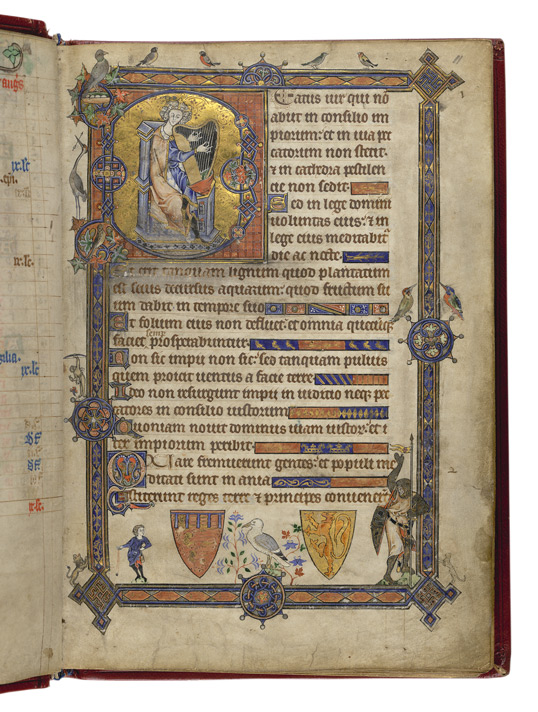 eatus uir qui nō
abiit in consilio im
piorum: et in uia pec
catorum non stetit:
& in cathedra pestilen
cie non sedit.
Sed in lege domini
uoluntas eius: & in
lege eius meditabit᷑
die ac nocte.
Et erit tanquam lignum quod plantatum
est secus decursus aquarum: quod fructum su
um dabit in tempore suo
Et folium eius non defluet: et omnia quecūq;
faciet semp prosperabuntur.
Non sic impii non sic: sed tanquam puluis
quem proicit uentus a facie terre.
Ideo non resurgunt impii in iudicio neq; pec
catores in consilio iustorum
Quoniam nouit dominus uiam iustor: et i
ter impiorum peribit.
Quare fremuerunt gentes: et populi me
ditati sunt in ania
Astiterunt reges terre & principes conuener̄t